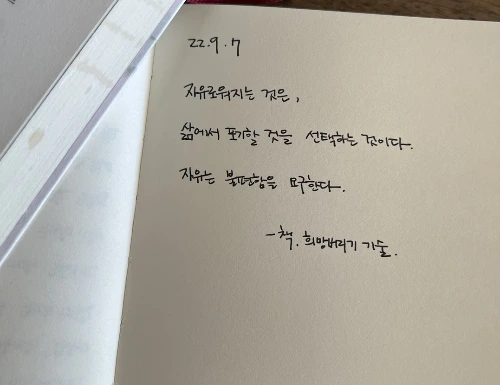 22.9.7
자유로워지는 것은,
삶에서 포기할 것을 선택하는 것이다.
자유는 불편함을 요구한다.
- 책. 희망버리기 기술.